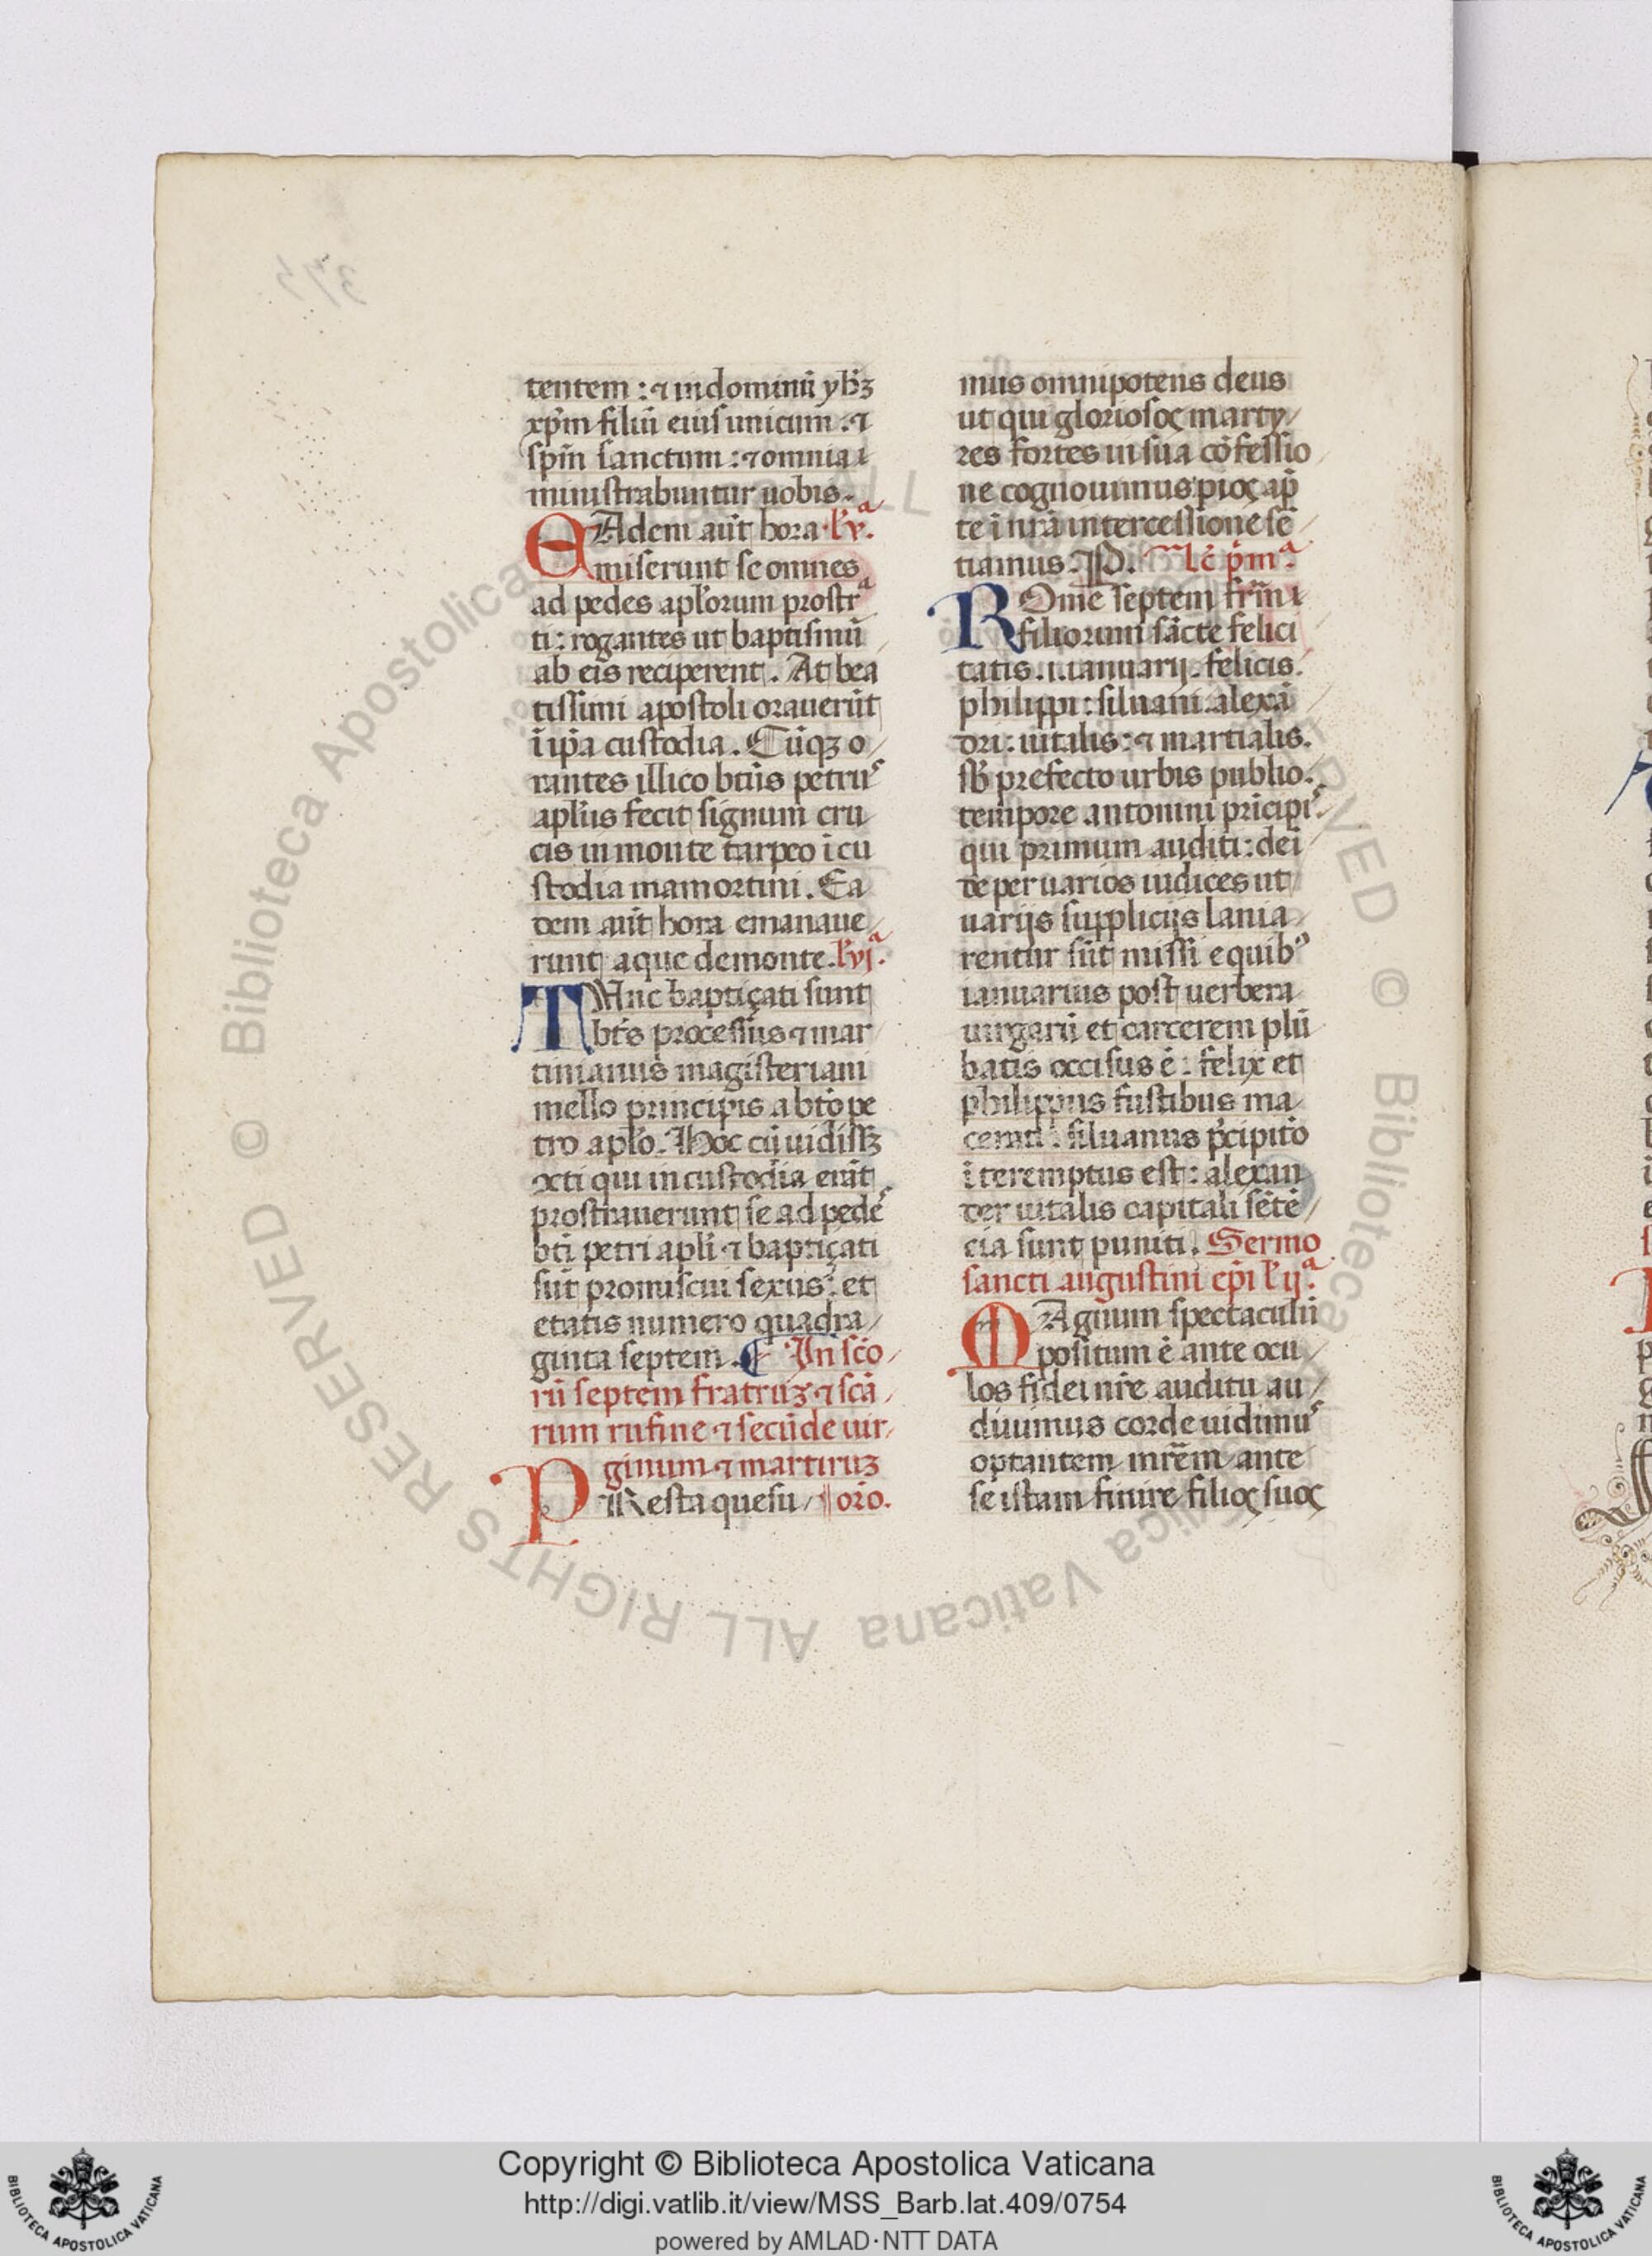 tentem : ⁊ in dominū yħꝫ
xp̄m filiū eius unicum . ⁊
sp̄m sanctum : ⁊ omnia i
ministrabuntur uobis .
EAdem aūt hora . l' vᵃ.
miserunt se omnes
ad pedes apl'orum prostrᵃ
ti : rogantes ut baptismū
ab eis reciperent . At bea
tissimi apostoli orauerūt
ī ip̄a custodia . Cūqꝫ o/
rantes illico bt̄us petruˢ
apl'us fecit signum cru
cis in monte tarpeo ī cu
stodia mamortini . Ea
dem aūt hora emanaue/
runt aque de monte . l' vjᵃ.
TUnc baptiçati sunt
bt̄s processus ⁊ mar
tinianus magisteriani
mello principis a bt̄o pe
tro apl'o . Hoc cū uidissꝫ
octi qui in custodia erāt
prostrauerunt se ad pedeˢ
bt̄i petri apl'i ⁊ baptiçati
sūt promiscui sexus : et
etatis numero quadra/
ginta septem . ¶ In sc̄o/
rū septem fratruꝫ ⁊ scā/
rum rufine ⁊ secūde uir/
ginum ⁊ martiruꝫ
PResta quesu/ oro̅.
mus omnipotens deus
ut qui gloriosoꝝ marty/
res fortes in sua cōfessio
ne cognouimus pioꝝ ap̄
te ī nr̄a intercessione sē
tiamus . P . lc̄ p̄mᵃ.
ROme septem fr̄m ⁊
filiorum sācte felici
tatis . i . ianuarij . felicis .
philippi : siluani . alexā
dri : uitalis : ⁊ martialis .
sb̄ prefecto urbis publio .
tempore antonini pricipiˢ.
qui primum auditi : dei
de per uarios iudices ut
uarijs supplicijs lania/
rentur sūt missi e quibꝰ
ianuarius post uerbera
uirgarū et carcerem plū
batis occisus ē : felix et
philippus fustibus ma/
cerati . siluanus p̄cipito̅
īteremptus est : alexan
der uitalis capitali sētē/
cia sunt puniti . Sermo
sancti augustini ep̄i l' ijᵃ.
MAgnum spectaculū
positum ē ante ocu/
los fidei nr̄e auditu au/
diuimus corde uidimuˢ
optantem mr̄em ante
se istam finire filioꝝ suoꝝ
Copyright © Biblioteca Apostolica Vaticana
http://digi.vatlib.it/view/MSS_Barb.lat.409/0754
powered by AMLAD·NTT DATA